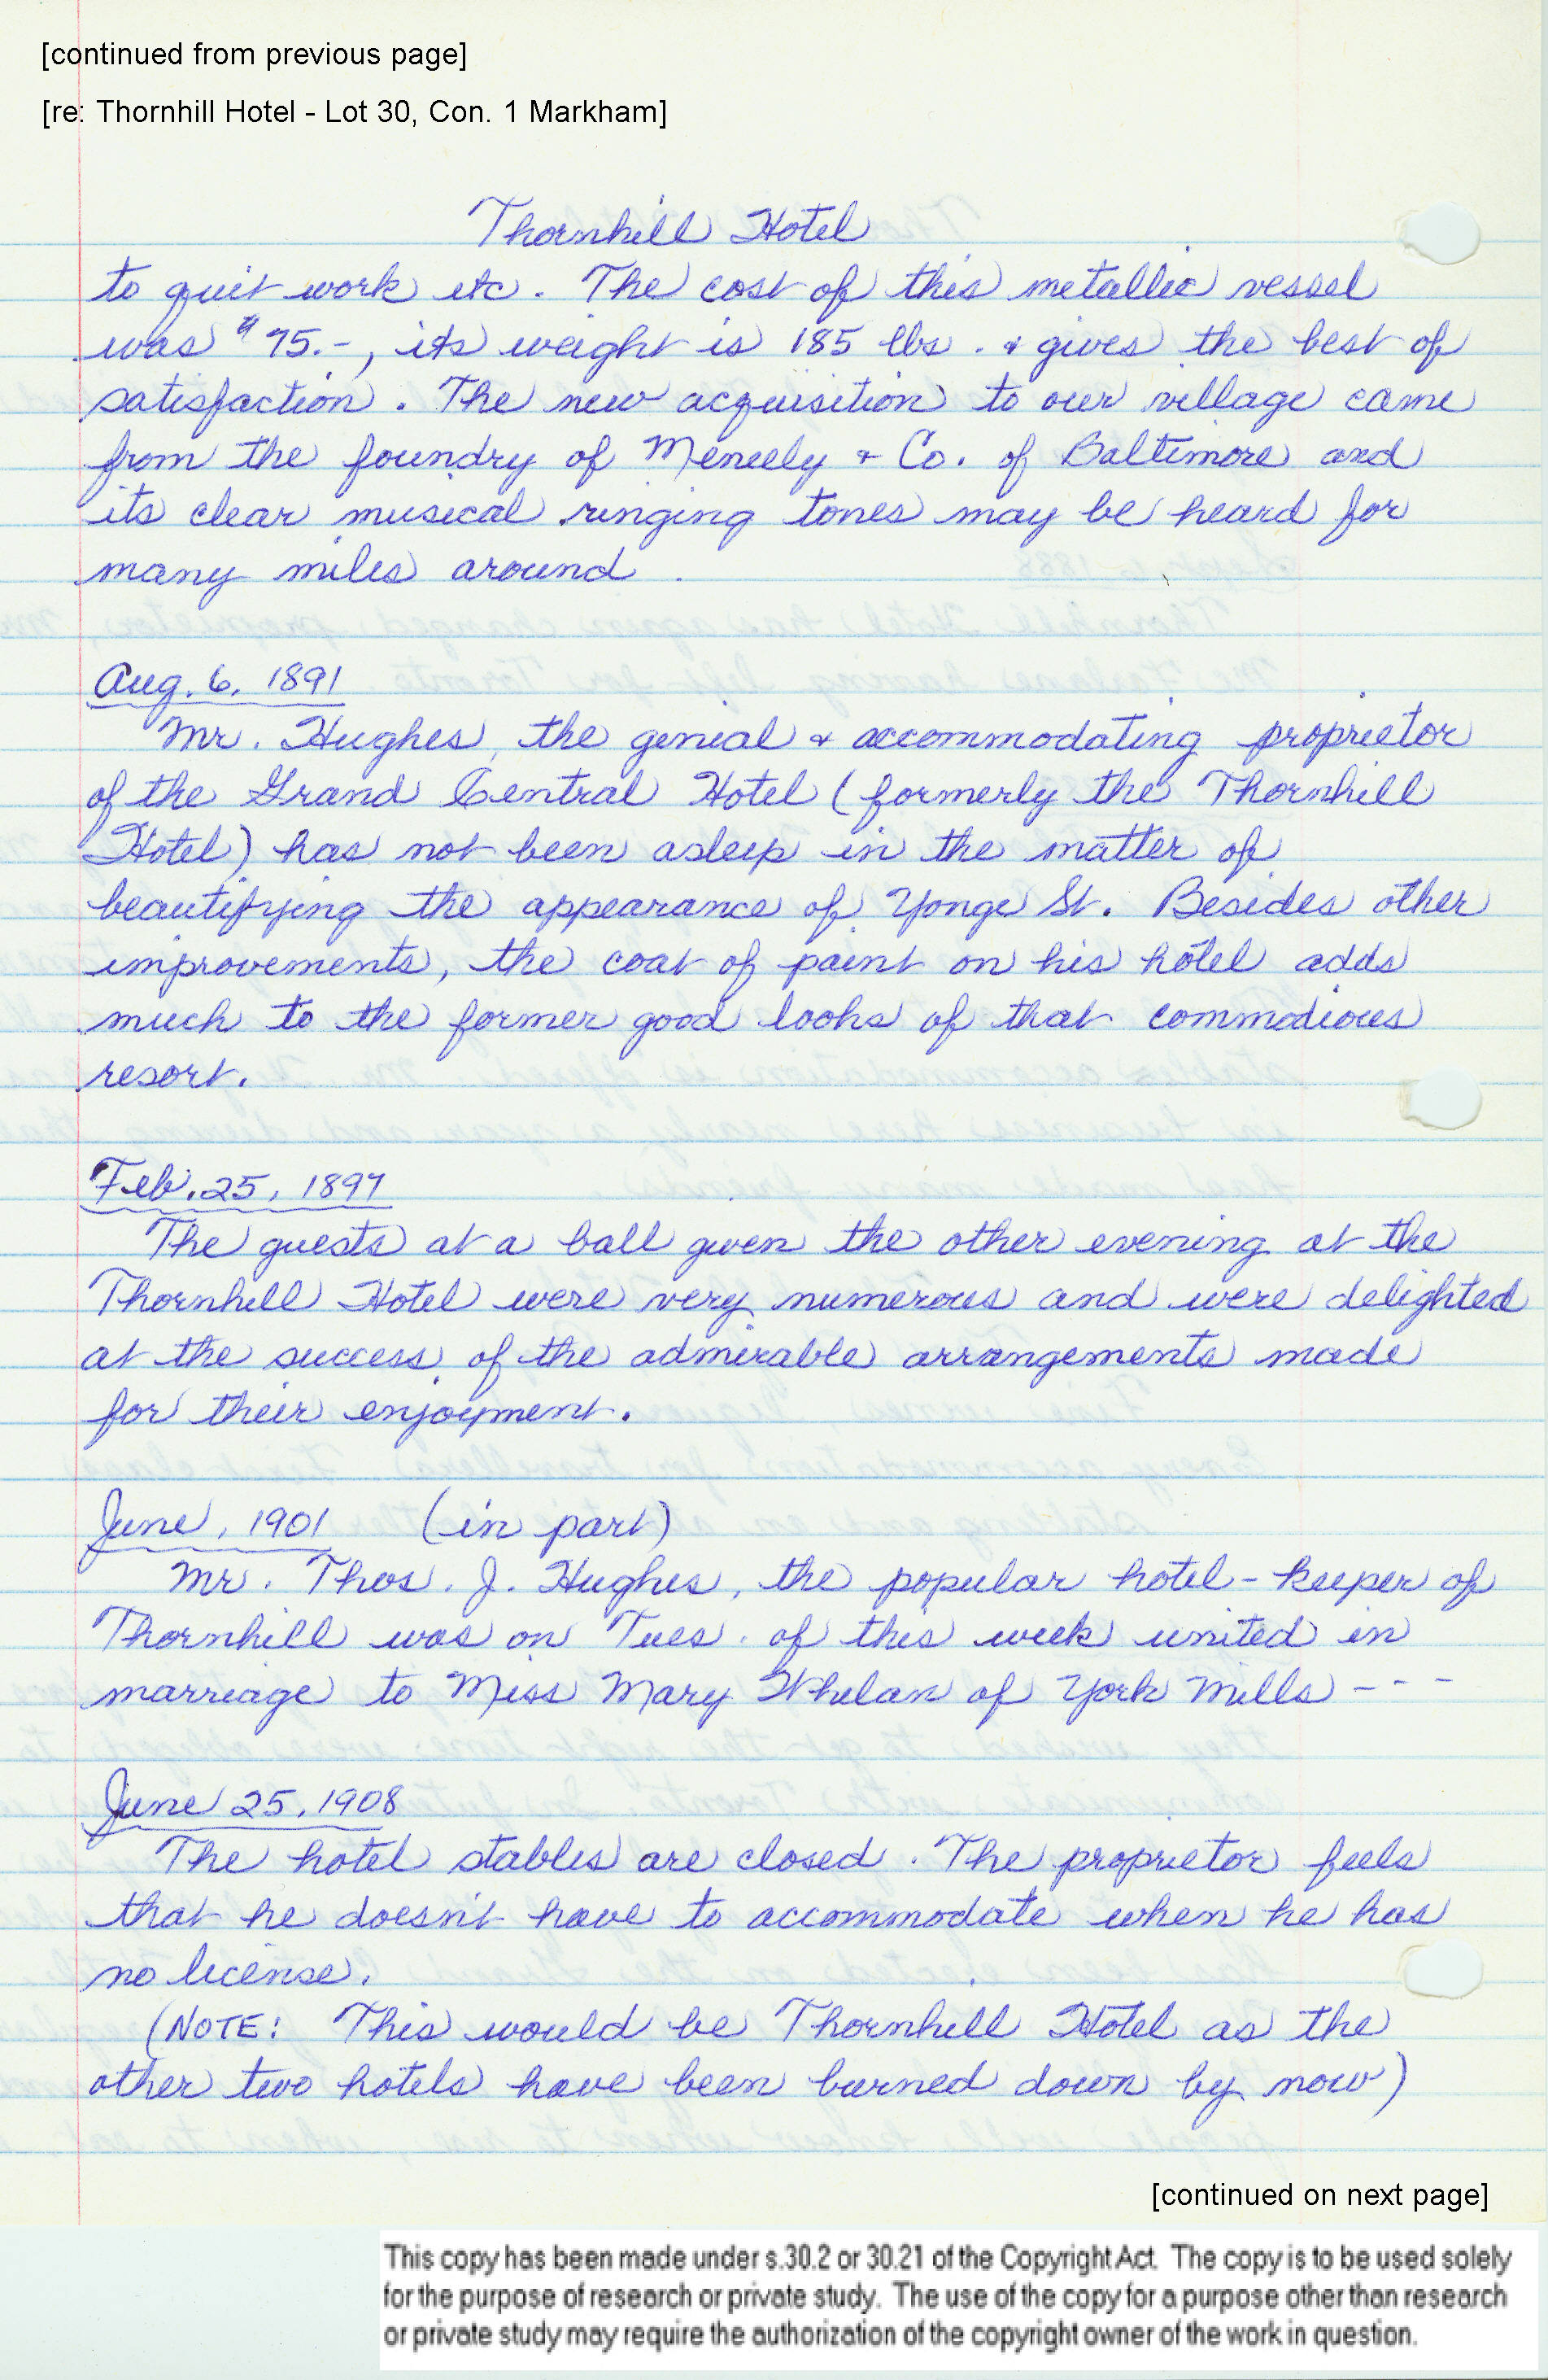 [continued from previous page]
[re: Thornhill Hotel - Lot 30, Con. 1 Markham]
Thornhill Hotel
to quit work etc. The cost of this metallic vessel
was $75.-, its weight is 185 lbs. & gives the best of
satisfaction. The new acquisition to our village came
from the foundry of Meneely & Co. of Baltimore and
its clear musical ringing tones may be heard for
many miles around.
Aug. 6, 1891
Mr. Hughes, the genial & accommodating proprietor
of the Grand Central Hotel (formerly the Thornhill
Hotel) has not been asleep in the matter of
beautifying the appearance of Yonge St. Besides other
improvements, the coat of paint on his hotel adds
much to the former good looks of that commodious
resort.
Feb. 25, 1897
The guests at a ball given the other evening at the
Thornhill Hotel were very numerous and were delighted
at the success of the admirable arrangements made
for their enjoyment.
June, 1901 (in part)
Mr. Thos. J. Hughes, the popular hotel-keeper of
Thornhill was on Tues. of this week united in
marriage to Miss Mary Whelan of York Mills - - -
June 25, 1908
The hotel stables are closed. The proprietor feels
that he doesn't have to accommodate when he has
no license.
(NOTE: This would be Thornhill Hotel as the
other two hotels have been burned down by now)
[continued on next page]
This copy has been made under s.30.2 or 30.21 of the Copyright Act. The copy is to be used solely
for the purpose of research or private study. The use of the copy for a purpose other than research
or private study may require the authorization of the copyright owner of the work in question.